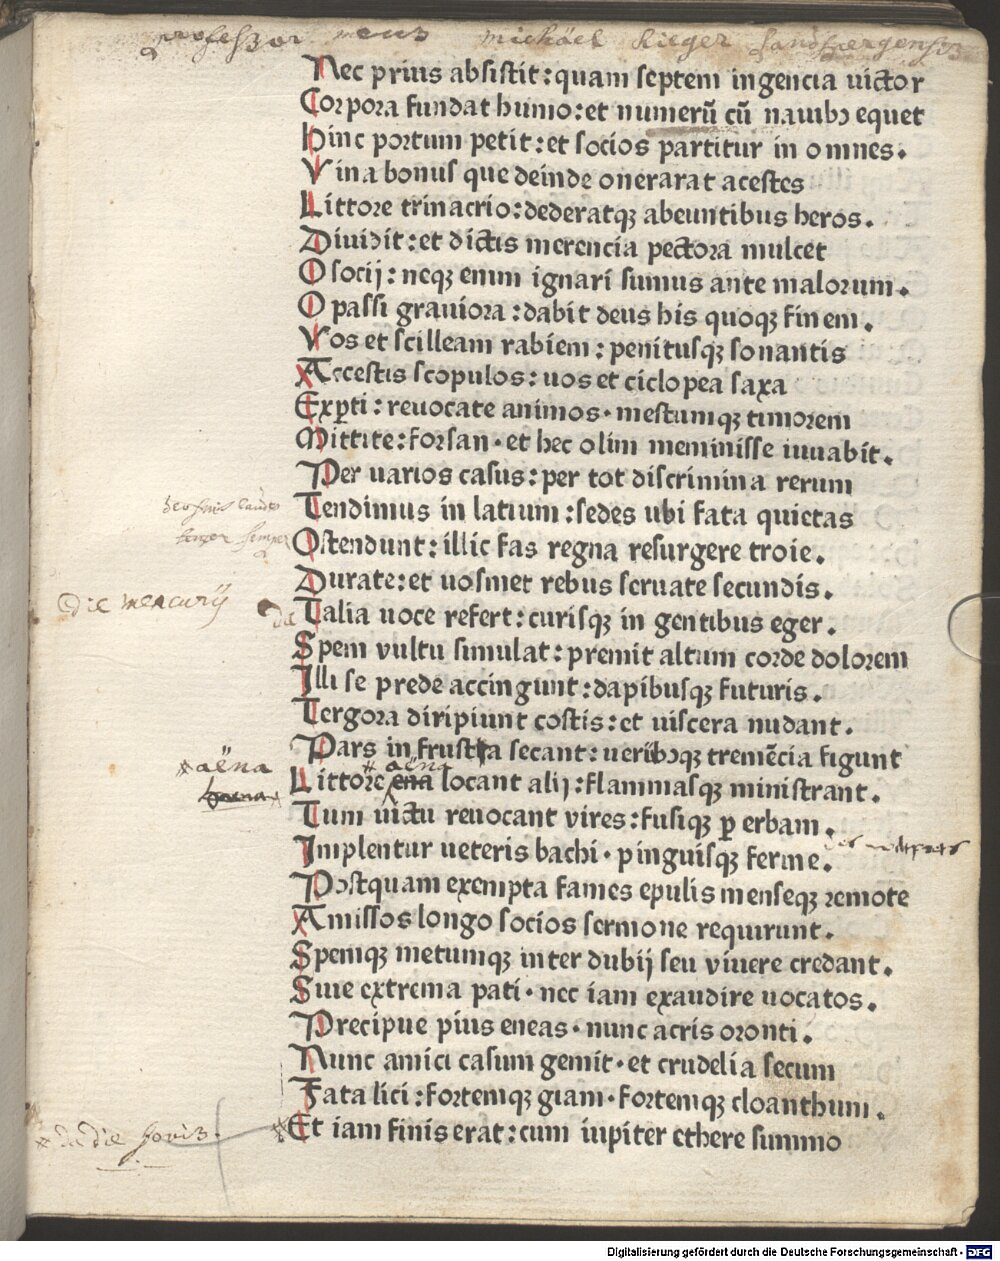 professor meus michäel Rieger Landspergensis
Nec prius absistit: quam septem ingencia uictor
Corpora fundat humo: et numerū cū nauibꝫ equet
Hinc portum petit: et socios partitur in omnes.
Vina bonus que deinde onerarat acestes
Littore trinacrio: dederatqꝫ abeuntibus heros.
Diuidit: et dictis merencia pectora mulcet
O socij: neqꝫ enim ignari sumus ante malorum.
O passi grauiora: dabit deus his quoqꝫ finem.
Vos et scilleam rabiem: penitusqꝫ sonantis
Accestis scopulos: uos et ciclopea saxa
Exꝑti: reuocate animos· mestumqꝫ timorem
Mittite: forsan· et hec olim meminisse iuuabit.
Per uarios casus: per tot discrimina rerum
Tendimus in latium: sedes ubi fata quietas
Ostendunt: illic fas regna resurgere troie.
Durate: et uosmet rebus seruate secundis.
die mercurij
da
Talia uoce refert: curisqꝫ in gentibus eger.
Spem vultu simulat: premit altum corde dolorem
Illi se prede accingunt: dapibusqꝫ futuris.
Tergora diripiunt costis: et uiscera nudant.
Pars in frusta secant: ueribꝫqꝫ tremēcia figunt
*aëna
* aëna
Littore ena locant alij: flammasqꝫ ministrant.
Tum uictu reuocant vires: fusiqꝫ ꝑ erbam.
Implentur ueteris bachi· pinguisqꝫ ferme.
Postquam exempta fames epulis menseqꝫ remote
Amissos longo socios sermone requirunt.
Spemqꝫ metumqꝫ inter dubij seu viuere credant.
Siue extrema pati· nec iam exaudire uocatos.
Precipue pius eneas· nunc acris oronti.
Nunc amici casum gemit· et crudelia secum
Fata lici: fortemqꝫ giam· fortemqꝫ cloanthum.
* da die Jovis.
*Et iam finis erat: cum iupiter ethere summo
Digitalisierung gefördert durch die Deutsche Forschungsgemeinschaft - DFG